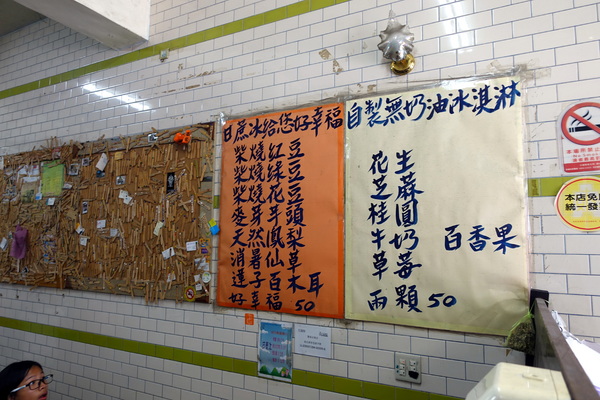 日蔗冰給您好幸福
柴燒紅豆
柴燒綠豆
柴燒花豆
頭
天然鳳梨
消暑仙草
蓮子百木耳
好幸福 50
自製無奶油冰淇淋
花生
芝蔴
桂圓
牛奶
百香果
草莓
兩顆 50
本店免
統一發